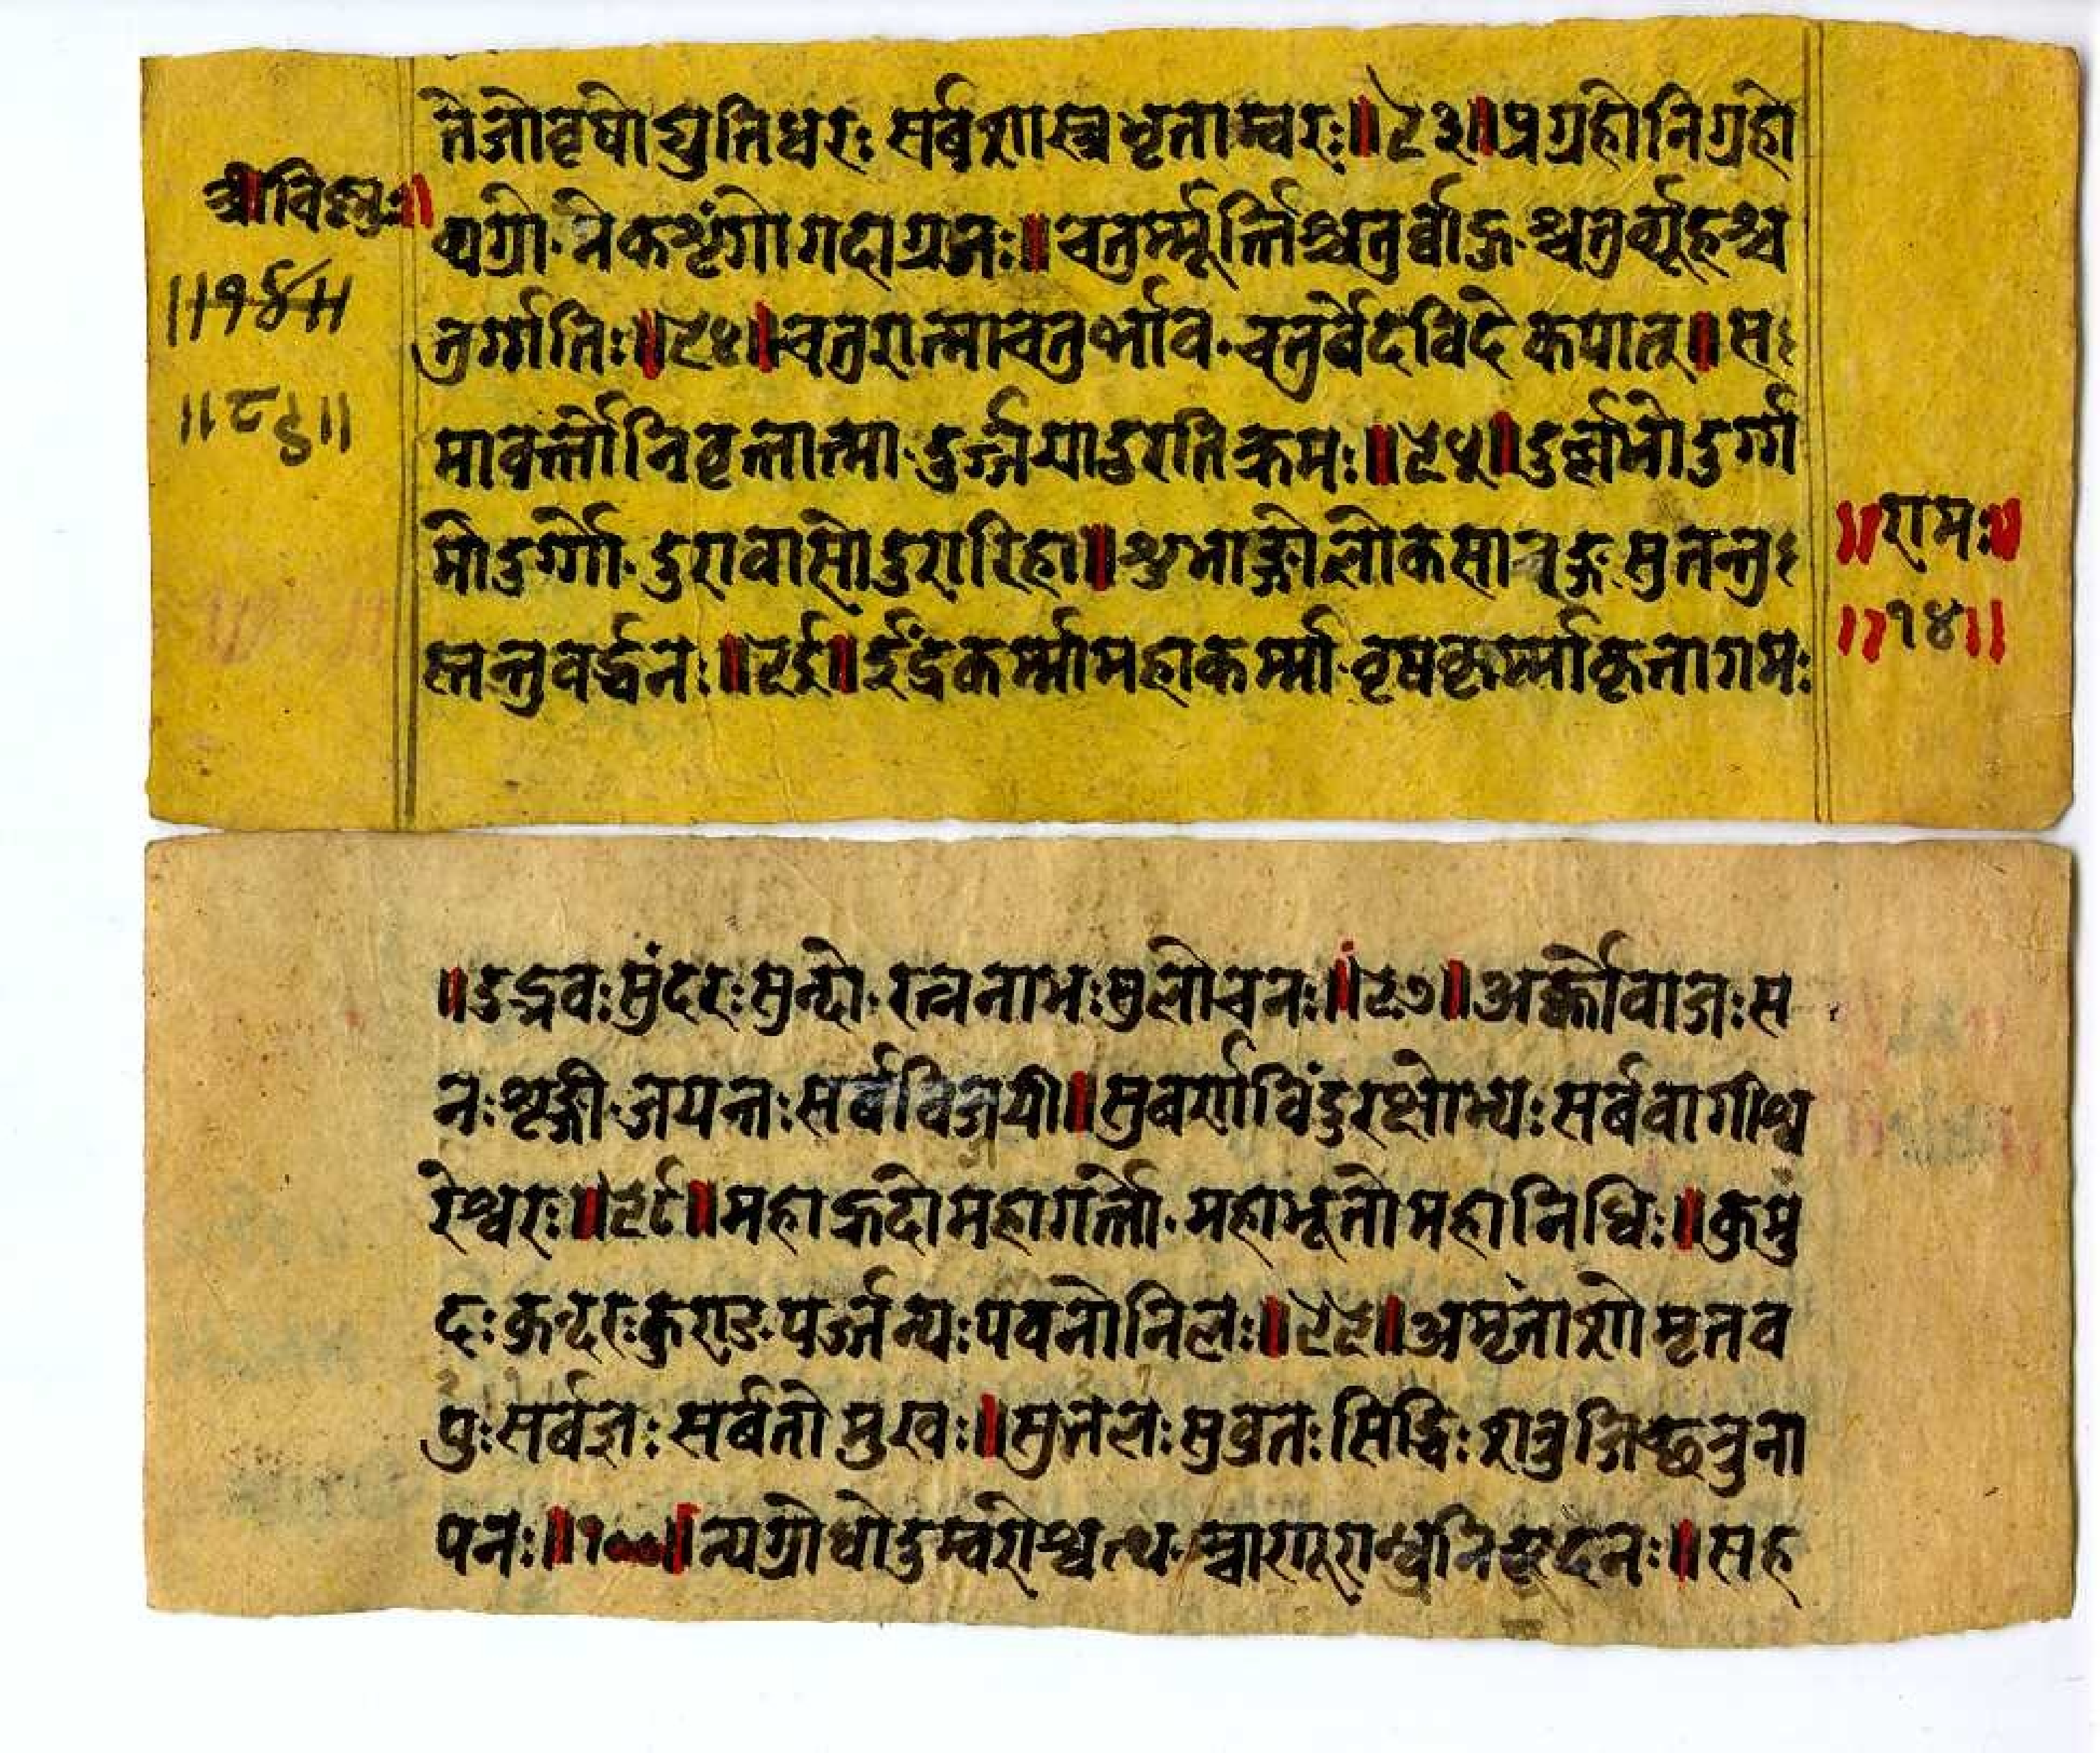 श्रीविष्णुः॥
॥१४॥
॥८६॥
तेजोवृषोद्युतिधरः सर्बशास्त्रभृताम्वरः॥९३॥प्रग्रहोनिग्रहो
व्यग्रो नेकशृंगोगदाग्रजः॥चतुर्म्मूर्त्तिश्चतुर्व्वाहुश्चतुर्व्यूहश्च
तुर्ग्गतिः॥९४॥चतुरात्माचतुर्भाव चतुर्वेदविदेकपात्॥स
मावर्त्तोनिवृत्तात्मा दुर्ज्जयोदुरतिक्रमः॥९५॥दुर्ल्लभोदुर्ग्ग
मोदुर्ग्गो दुरावासोदुरारिहा॥शुभाङ्गोलोकसारङ्ग सुतन्तु
स्तन्तुवर्द्धनः॥९६॥ईंद्रकर्म्मामहाकर्म्मा वृषकृर्म्माकृतागमः
॥रामः॥
॥१४॥
॥उद्भवःसुंदरःसुन्दो रत्ननाभःसुलोचनः॥९७॥अर्क्कोवाजःस
नःशृङ्गी जयन्तःसर्बविजयी॥सुबर्णविंदुरक्षोभ्यःसर्बवागीश्व
रेश्वरः॥९८॥महाह्रदोमहागर्त्तो महाभूतोमहानिधिः॥कुमु
दःकुन्दरःकुराड पर्ज्जन्यःपवनोनिलः॥९९॥अमृतांशोमृतव
पुःसर्बज्ञःसर्बतोमुखः॥सुलेलःसुव्रतःसिद्धिःशत्रुजिच्छत्रुता
पनः॥१००॥न्यग्रोधोदुम्वरोश्वत्थ श्चाणूरान्ध्रनिसूदनः॥सह